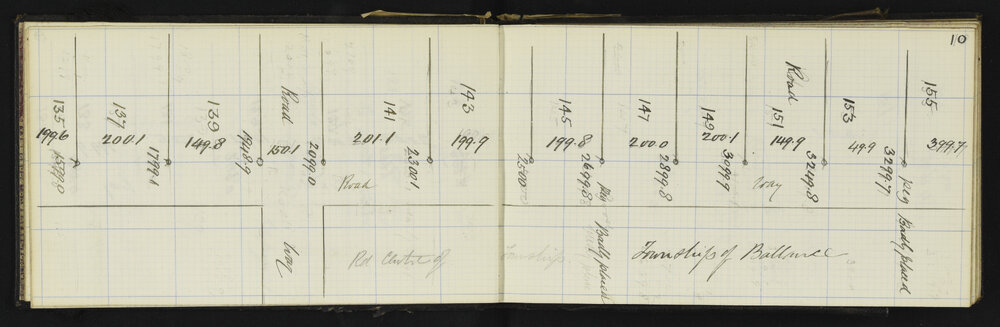 10
135
137
139
Road
141
143
145
147
149
Road
151
153
155
199.6
200.1
149.8
150.1
201.1
199.9
199.8
200.0
200.1
149.9
49.9
399.7
1799.1
1948.9
2099.0
2300.1
2500.0
2699.8
2899.8
3099.9
3249.8
3299.7
Road
way
way
peg Badly placed
peg Badly placed
Rd Centre of
Township
Township of